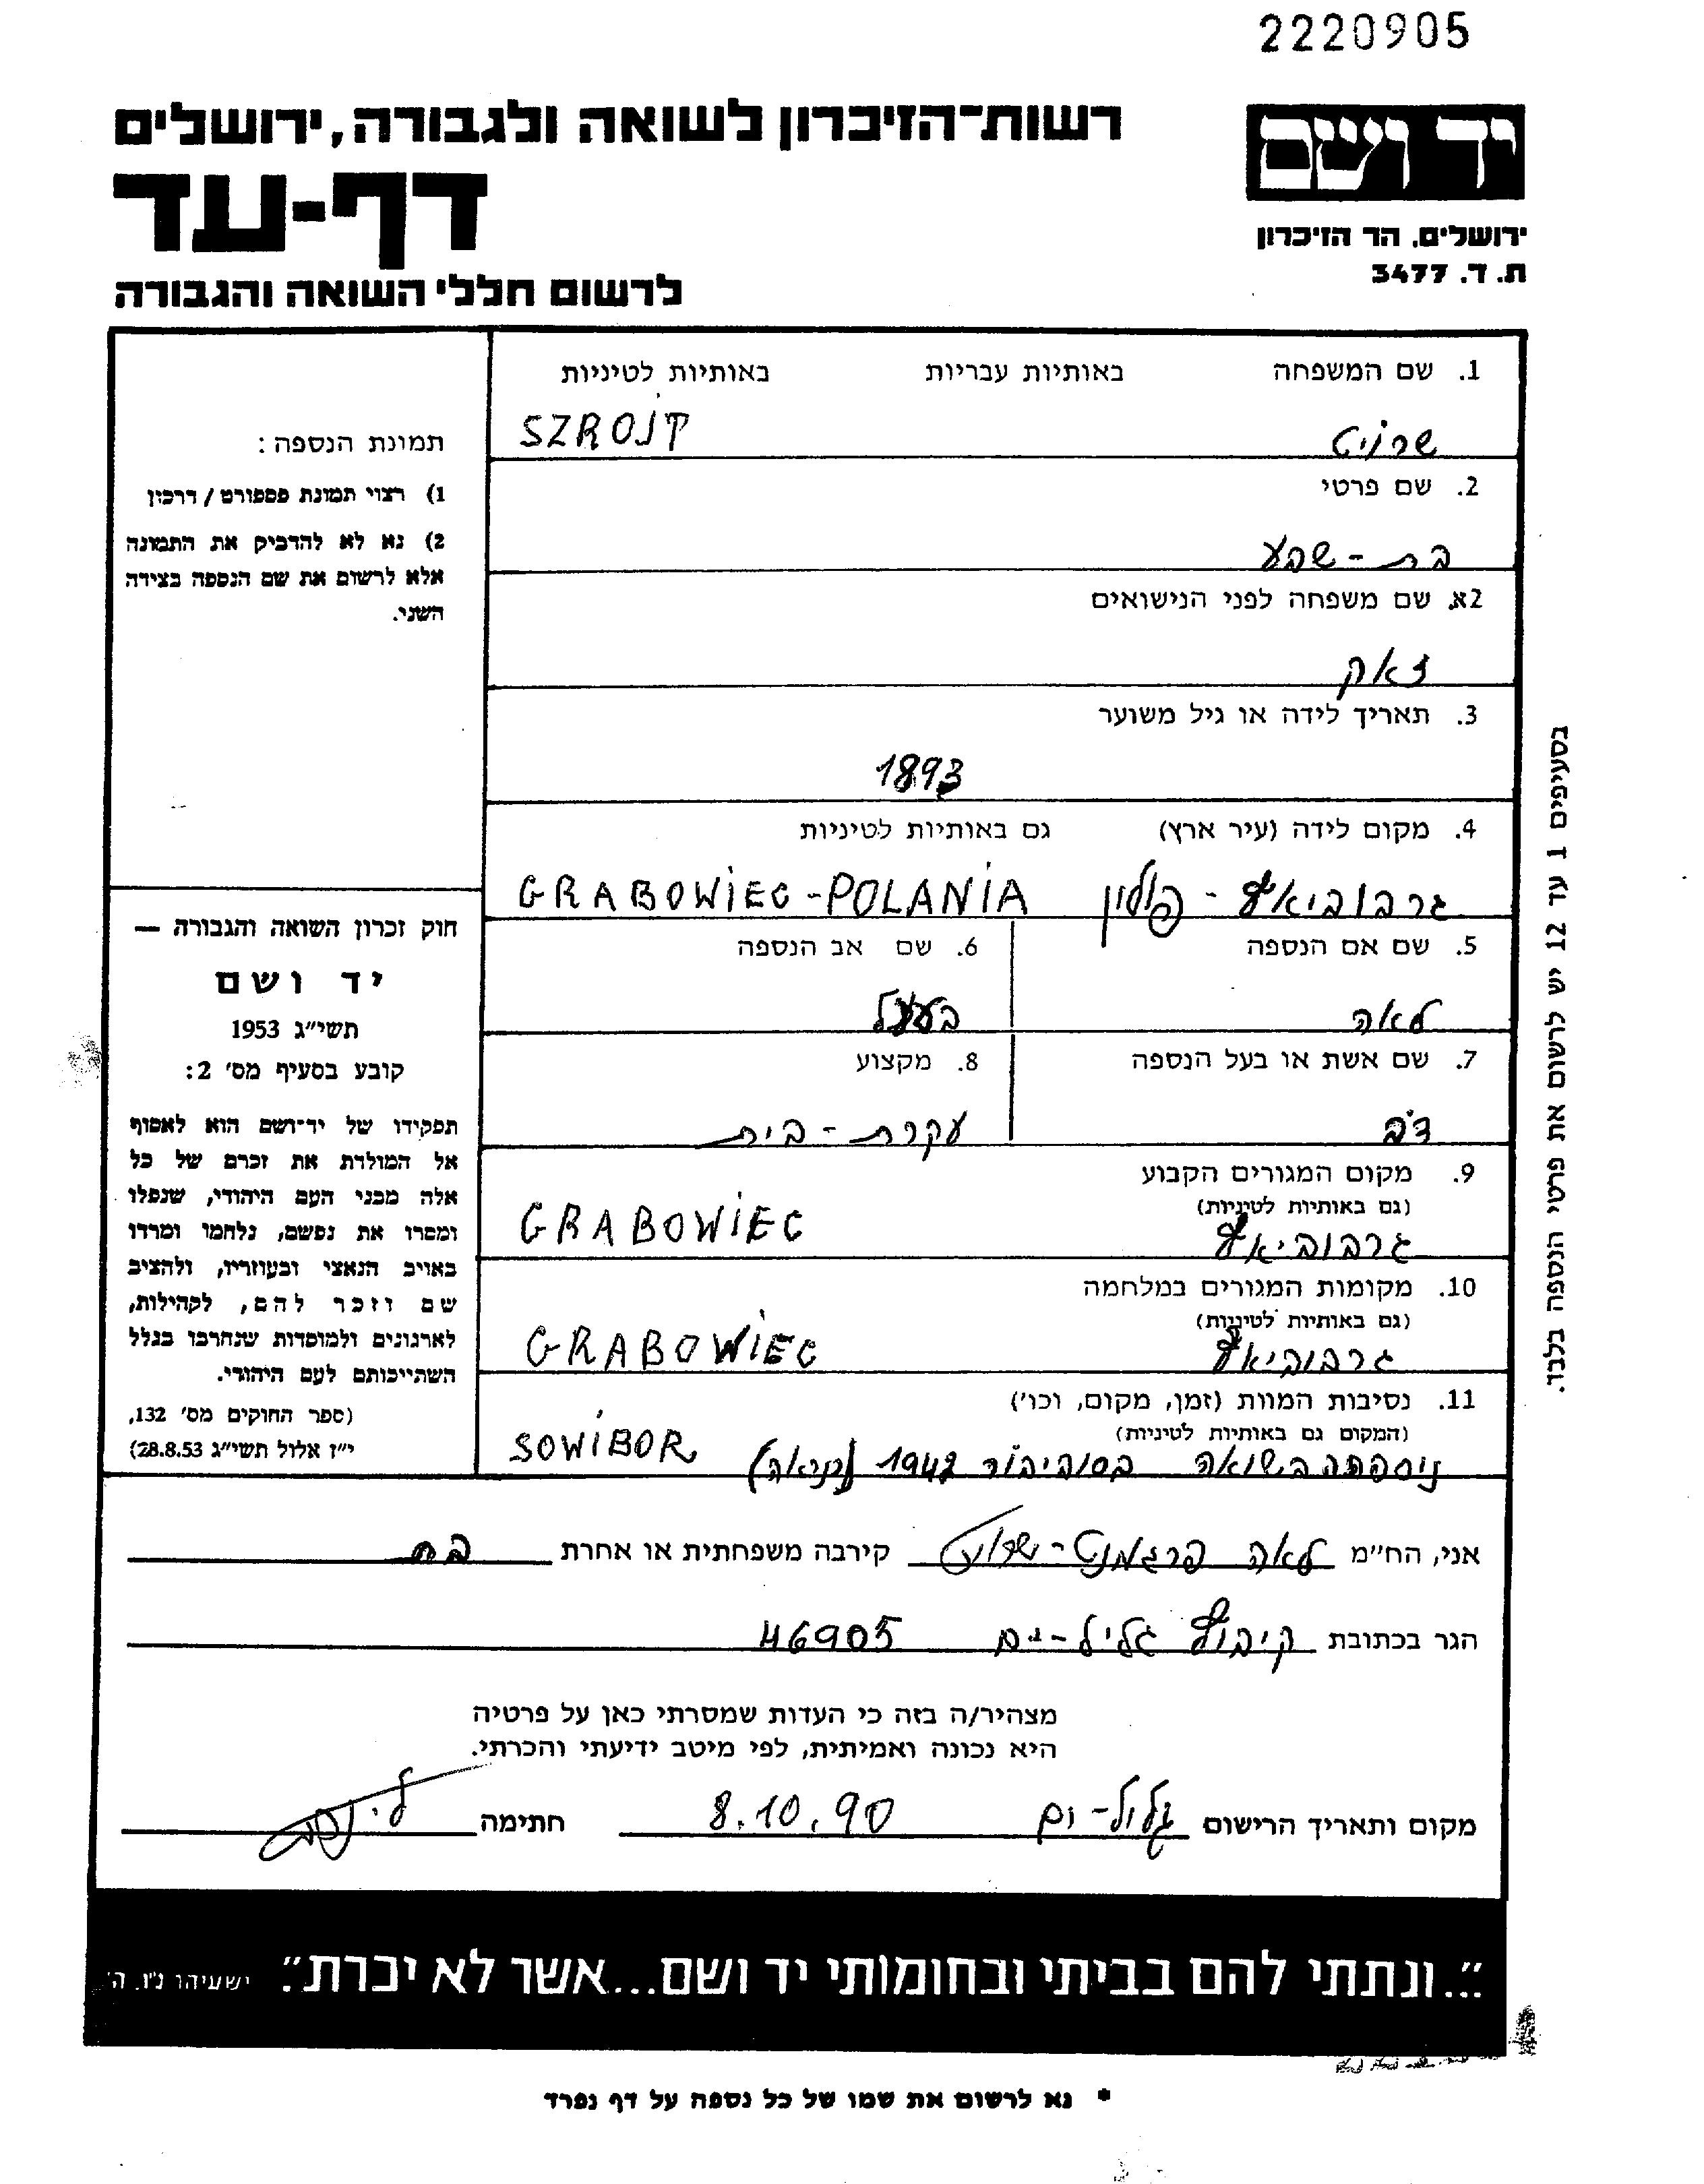 2220905
רשות־הזיכרון לשואה ולגבורה, ירושלים
יד ושם
דף-עד
ירושלים. הר הזיכרון
ת. ד. 3477
לרשום חללי השואה והגבורה
1. שם המשפחה באותיות עבריות באותיות לטיניות
שרויט SZROJT
2. שם פרטי
בת - שבע
2א. שם משפחה לפני הנישואים
זאק
3. תאריך לידה או גיל משוער
1893
4. מקום לידה (עיר ארץ) גם באותיות לטיניות
גרבוביאץ - פולין GRABOWIEC - POLANIA
5. שם אם הנספה 6. שם אב הנספה
לאה
7. שם אשת או בעל הנספה 8. מקצוע
דב עקרת - בית
9. מקום המגורים הקבוע
(גם באותיות לטיניות)
גרבוביאץ GRABOWIEC
10. מקומות המגורים במלחמה
(גם באותיות לטיניות)
גרבוביאץ GRABOWIEC
11. נסיבות המוות (זמן, מקום, וכו')
(המקום גם באותיות לטיניות)
ניספתה בשואה בסוביבור 1942 (כנראה) SOWIBOR
תמונת הנספה:
1) רצוי תמונת פספורט / דרכון
2) נא לא להדביק את התמונה
אלא לרשום את שם הנספה בצידה
השני.
חוק זכרון השואה והגבורה —
יד ושם
תשי״ג 1953
קובע בסעיף מס' 2:
תפקידו של יד־ושם הוא לאסוף
אל המולדת את זכרם של כל
אלה מבני העם היהודי, שנפלו
ומסרו את נפשם, נלחמו ומרדו
באויב הנאצי ובעוזריו, ולהציב
שם וזכר להם, לקהילות,
לארגונים ולמוסדות שנחרבו בגלל
השתייכותם לעם היהודי.
(ספר החוקים מס' 132,
י״ז אלול תשי״ג 28.8.53)
בסעיפים 1 עד 12 יש לרשום את פרטי הנספה בלבד.
אני, הח״מ לאה פרגמנט - שרויט קירבה משפחתית או אחרת בת
הגר בכתובת קיבוץ גליל - ים 46905
מצהיר/ה בזה כי העדות שמסרתי כאן על פרטיה
היא נכונה ואמיתית, לפי מיטב ידיעתי והכרתי.
מקום ותאריך הרישום גליל - ים 8.10.90 חתימה
״...ונתתי להם בביתי ובחומותי יד ושם...אשר לא יכרת״. ישעיהו נ״ו. ה׳
* נא לרשום את שמו של כל נספה על דף נפרד